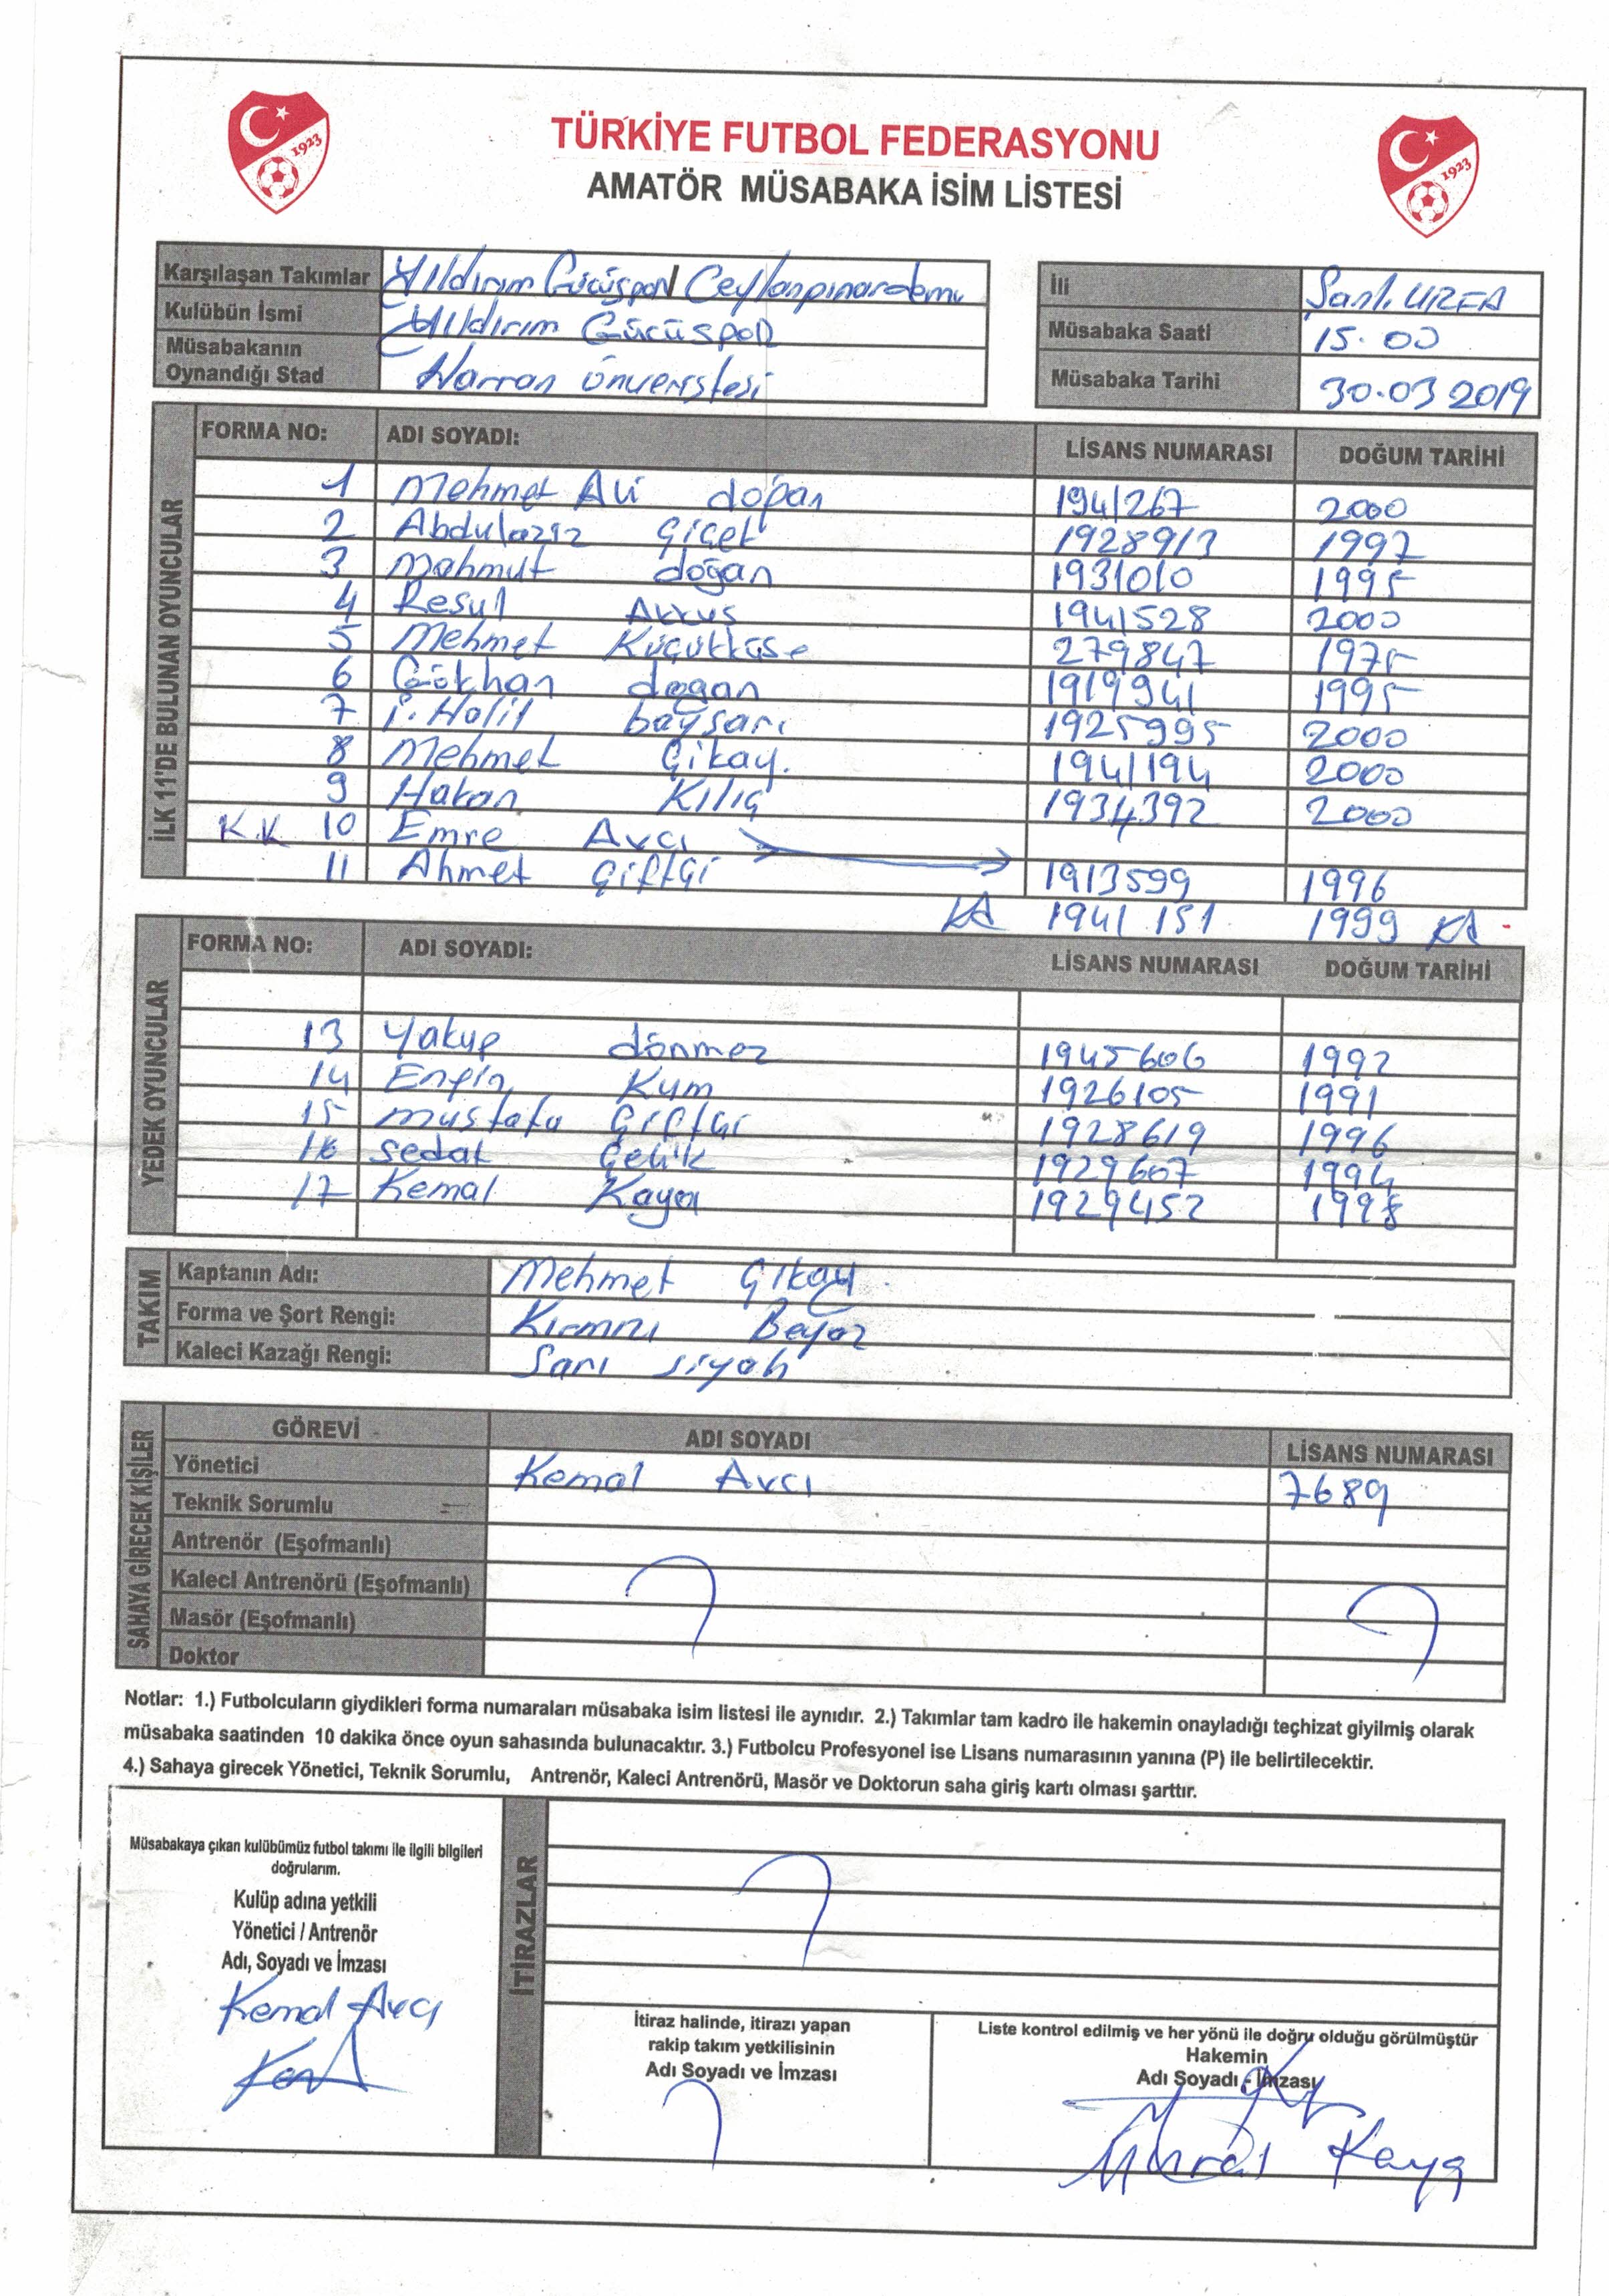 1923
1923
TÜRKİYE FUTBOL FEDERASYONU
AMATÖR MÜSABAKA İSİM LİSTESİ
Karşılaşan Takımlar Yıldırım Gücüspor/ Ceylanpınardemir
Kulübün İsmi Yıldırım Gücüspor
Müsabakanın
Oynandığı Stad Harran ünveristesi
İli Şanlı URFA
Müsabaka Saati 15.00
Müsabaka Tarihi 30.03 2019
İLK 11'DE BULUNAN OYUNCULAR
FORMA NO: ADI SOYADI: LİSANS NUMARASI DOĞUM TARİHİ
1 Mehmet Ali doğan 1941267 2000
2 Abdulaziz 1928913 1997
3 Mahmut doğan 1931010 1995
4 Resul Akkuş 1941528 2000
5 Mehmet Küçükköse 279847 1975
6 Gökhan dogan 1919941 1995
7 i. Halil baysarı 1925995 2000
8 Mehmet Çıkay. 1941194 2000
9 Hakan Kılıç 1934392 2000
K.K 10 Emre Avcı
11 Ahmet Çiftçi 1913599 1996
KA 1941 151 1999 KA
YEDEK OYUNCULAR
FORMA NO: ADI SOYADI: LİSANS NUMARASI DOĞUM TARİHİ
13 Yakup dönmez 1945606 1992
14 Engin Kum 1926105 1991
15 mustafa Çiftçi 1928619 1996
16 sedat Çelik 1929607 1994
17 Kemal Kaya 1929452 1998
TAKIM
Kaptanın Adı: Mehmet Çıkay.
Forma ve Şort Rengi: Kırmızı Beyaz
Kaleci Kazağı Rengi: Sarı siyah
SAHAYA GİRECEK KİŞİLER
GÖREVİ ADI SOYADI LİSANS NUMARASI
Yönetici Kemal Avcı 7689
Teknik Sorumlu
Antrenör (Eşofmanlı)
Kaleci Antrenörü (Eşofmanlı)
Masör (Eşofmanlı)
Doktor
Notlar: 1.) Futbolcuların giydikleri forma numaraları müsabaka isim listesi ile aynıdır. 2.) Takımlar tam kadro ile hakemin onayladığı teçhizat giyilmiş olarak
müsabaka saatinden 10 dakika önce oyun sahasında bulunacaktır. 3.) Futbolcu Profesyonel ise Lisans numarasının yanına (P) ile belirtilecektir.
4.) Sahaya girecek Yönetici, Teknik Sorumlu, Antrenör, Kaleci Antrenörü, Masör ve Doktorun saha giriş kartı olması şarttır.
Müsabakaya çıkan kulübümüz futbol takımı ile ilgili bilgileri
doğrularım.
Kulüp adına yetkili
Yönetici / Antrenör
Adı, Soyadı ve İmzası
Kemal Avcı
İTİRAZLAR
İtiraz halinde, itirazı yapan
rakip takım yetkilisinin
Adı Soyadı ve İmzası
Liste kontrol edilmiş ve her yönü ile doğru olduğu görülmüştür
Hakemin
Adı Soyadı - İmzası
Murat Kaya